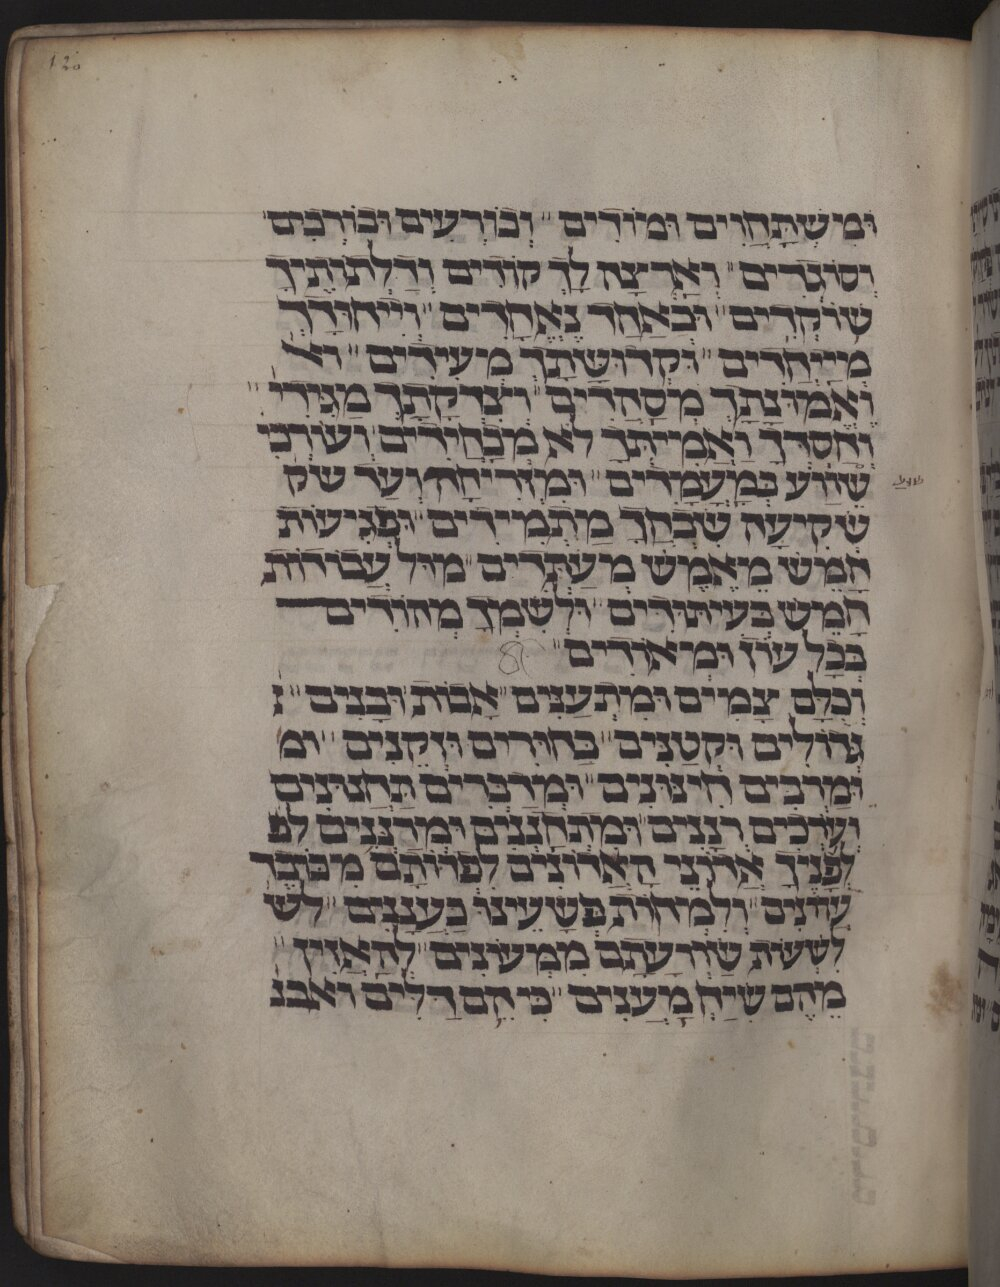 120
וּמִשְׁתַּחֲוִים וּמוֹדִים" וְכוֹרְעִים וּבוֹרְכִים
וְסוֹגְדִים" וְאַרְצָה לְךָ קוֹדִים וְדַלְתוֹתֶיךָ
שׁוֹקְדִים" וּכְאֶחָד נֶאֱחָדִים" וְיִיחוּדָךְ
מְיַיחֲדִים" וּקְדוּשָׁתָךְ מְעִידִים" וא
וֶאֱמוּנָתָךְ מְסַהֲדִים" וְצִדְקָתָךְ מַגִּידִי"
וְחַסְדְּךָ וַאֲמִיתְּךָ לֹא מְכַחֲדִים וְשׁוֹתְ
שִׁוּוּעַ בְּמַעֲמָדִים" וּמִזְּרִיחָה וְעַד שק
שְׁקִיעָה שִׁבְחֲךָ מַתְמִידִים" וּפְגִיעוֹת
חָמֵשׁ מֵאֶמֶשׁ מְעַתְּדִים" מוּל עֲבֵירוֹת
חָמֵשׁ בְּעִיתּוּדִים" וּלְשִׁמְךָ מְהוֹדִים
בְּכָל עוֹז וּמְאוֹדִים"
וְכֻלָּם צָמִים וּמִתְעַנִּים" אָבוֹת וּבָנִים" ג
גְּדוֹלִים וּקְטַנִּים" בַּחוּרִים וּזְקֵנִים" ומ
וּמַרְבִּים חִינּוּנִים" וּמְדַבְּרִים תַּחֲנוּנִים
וְעוֹרְכִים רְנָנִים" וּמִתְחַנְּנִים וּמְרַנְּנִים לפ
לְפָנֶיךָ אֲדוֹנֵי הָאֲדוֹנִים לִפְדוֹתָם מִכֶּתֶר
עֲווֹנִים" וְלִמְחוֹת פְּשָׁעֵינוּ כַּעֲנָנִים" לש
לְשָׁעוֹת שַׁוְועָתָם מִמְּעוֹנִים" לְהַאֲזִין"
מֵהֶם שִׂיחַ מַעֲנִים" כִּי הֵם דַּלִּים ואבנ